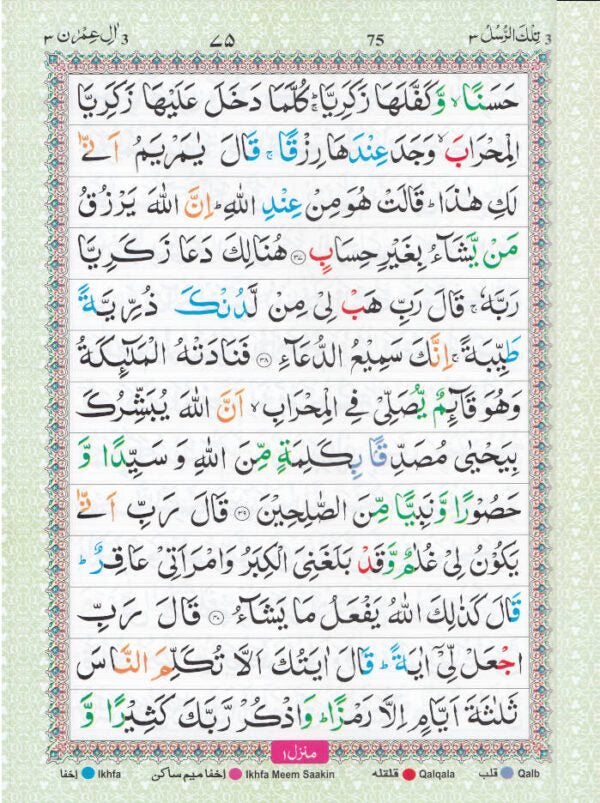 3 تِلْكَ الرُّسُلُ ٣ 75 ٧٥ 3 اٰلِ عِمْرٰن ٣
حَسَنًا ۙ وَّ كَفَّلَهَا زَكَرِيَّا ؕۚ كُلَّمَا دَخَلَ عَلَيْهَا زَكَرِيَّا
الْمِحْرَابَ ۙ وَجَدَ عِنْدَهَا رِزْقًا ۚ قَالَ يٰمَرْيَمُ اَنّٰى
لَكِ هٰذَا ؕ قَالَتْ هُوَ مِنْ عِنْدِ اللّٰهِ ؕ اِنَّ اللّٰهَ يَرْزُقُ
مَنْ يَّشَآءُ بِغَيْرِ حِسَابٍ ﴿۳۷﴾ هُنَالِكَ دَعَا زَكَرِيَّا
رَبَّهٗ ۚ قَالَ رَبِّ هَبْ لِىْ مِنْ لَّدُنْكَ ذُرِّيَّةً
طَيِّبَةً ۚ اِنَّكَ سَمِيْعُ الدُّعَآءِ ﴿۳۸﴾ فَنَادَتْهُ الْمَلٰٓئِكَةُ
وَهُوَ قَآئِمٌ يُّصَلِّىْ فِى الْمِحْرَابِ ۙ اَنَّ اللّٰهَ يُبَشِّرُكَ
بِيَحْيٰى مُصَدِّقًۢا بِكَلِمَةٍ مِّنَ اللّٰهِ وَ سَيِّدًا وَّ
حَصُوْرًا وَّنَبِيًّا مِّنَ الصّٰلِحِيْنَ ﴿۳۹﴾ قَالَ رَبِّ اَنّٰى
يَكُوْنُ لِىْ غُلٰمٌ وَّقَدْ بَلَغَنِىَ الْكِبَرُ وَامْرَاَتِىْ عَاقِرٌ ؕ
قَالَ كَذٰلِكَ اللّٰهُ يَفْعَلُ مَا يَشَآءُ ﴿۴۰﴾ قَالَ رَبِّ
اجْعَلْ لِّىْۤ اٰيَةً ؕ قَالَ اٰيَتُكَ اَلَّا تُكَلِّمَ النَّاسَ
ثَلٰثَةَ اَيَّامٍ اِلَّا رَمْزًا ؕ وَاذْكُرْ رَّبَّكَ كَثِيْرًا وَّ
منزل ١
اخفا Ikhfa اخفا میم ساکن Ikhfa Meem Saakin قلقله Qalqala قلب Qalb